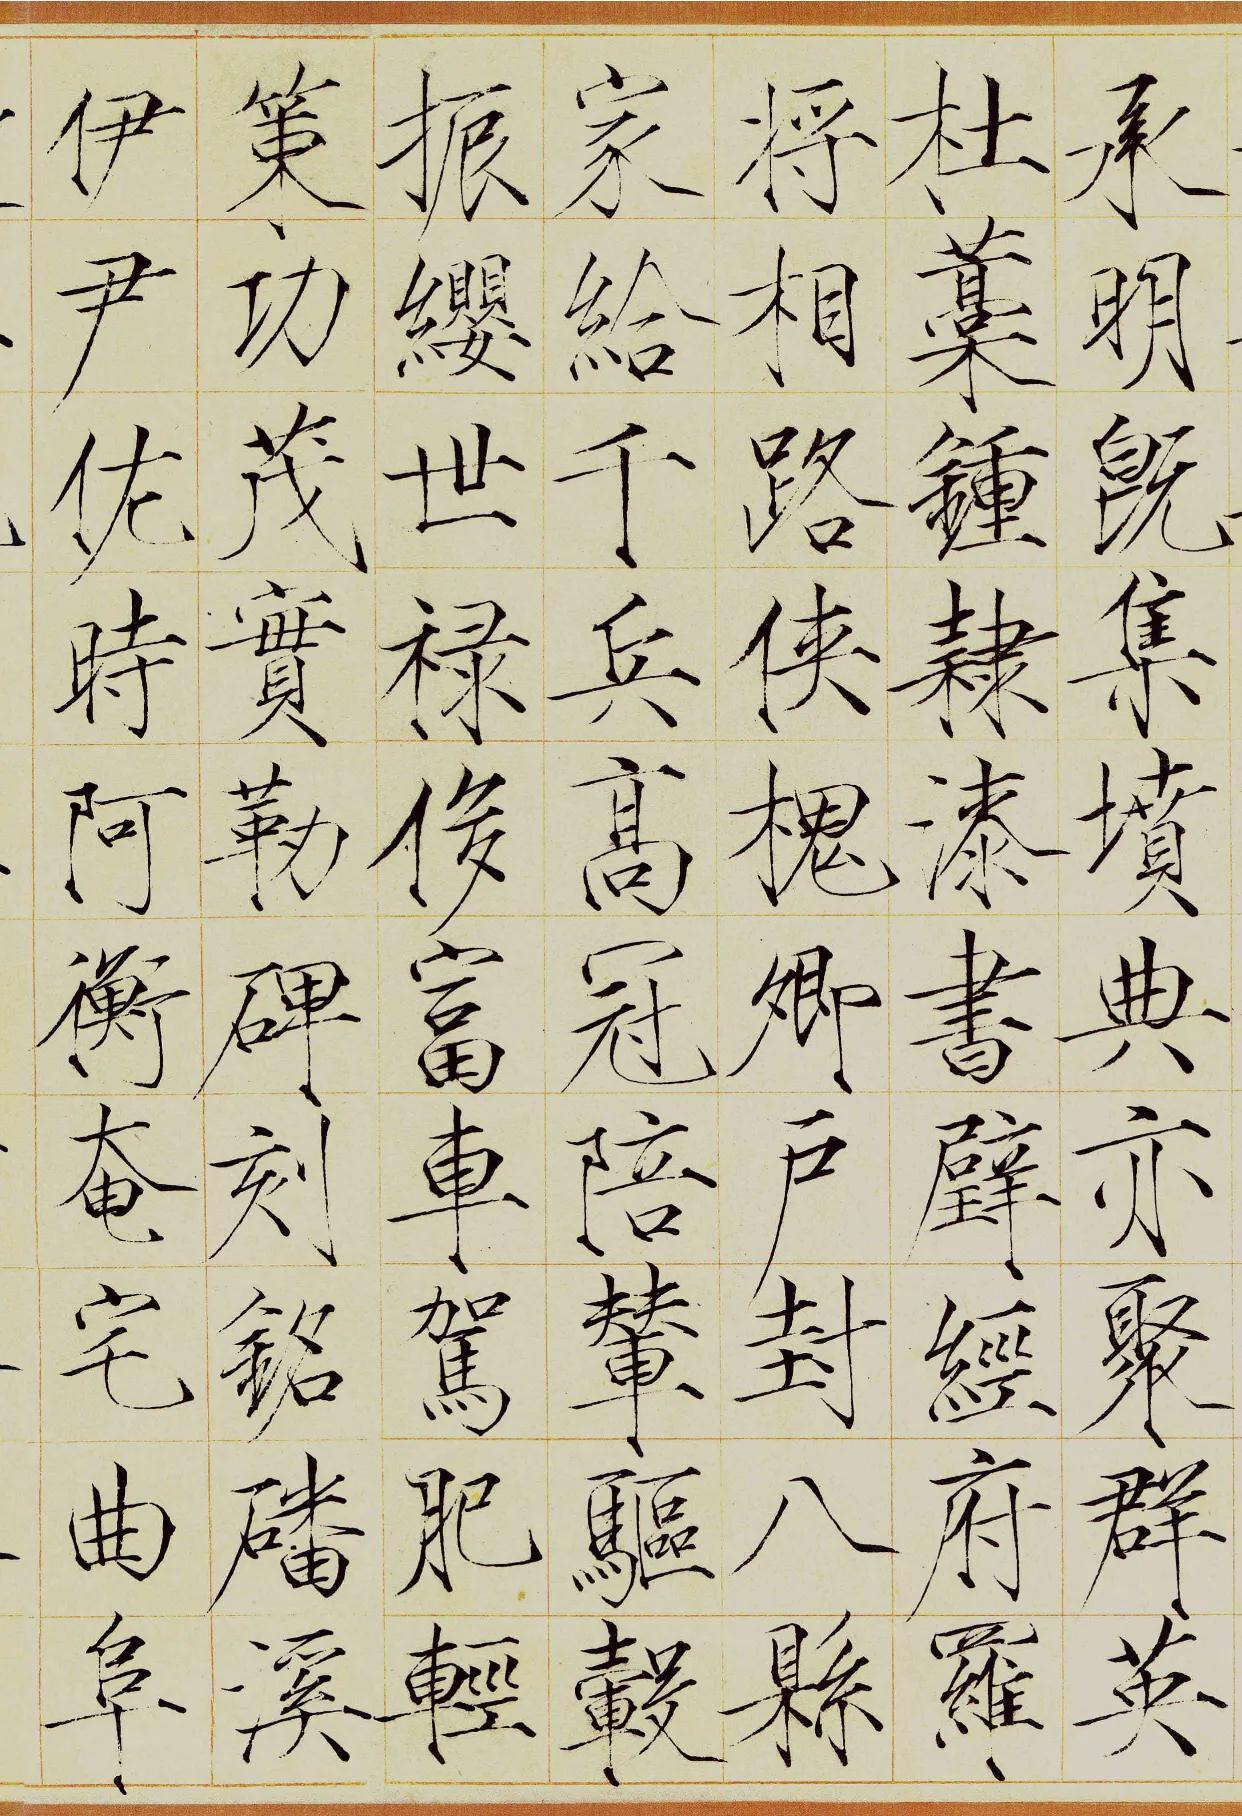 承明既集墳典亦聚群英
杜藁鍾隸漆書壁經府羅
将相路俠槐卿戶封八縣
家給千兵高冠陪輦驅轂
振纓世禄侈富車駕肥輕
策功茂實勒碑刻銘磻溪
伊尹佐時阿衡奄宅曲阜